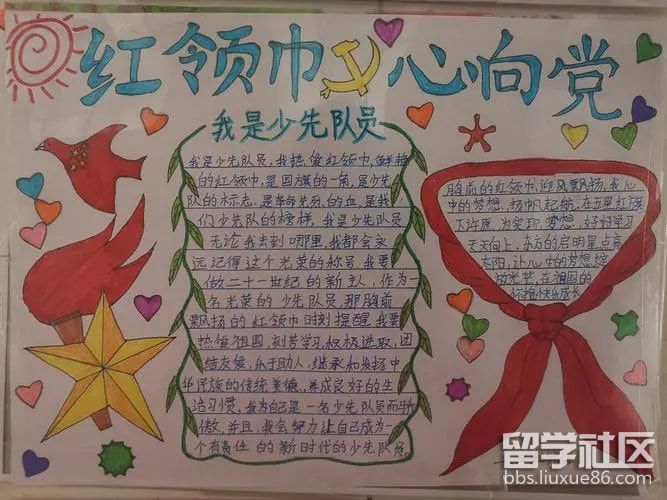 红领巾心向党
我是少先队员
我是少先队员,我热爱红领巾,鲜艳
的红领巾,是国旗的一角,是少先
队的标志,是革命先烈的血,是我
们少先队的榜样,我是少先队员
无论我去到哪里,我都会永
远记得这个光荣的称号,我要
做二十一世纪的新主人,作为一
名光荣的少先队员,那胸前
飘扬的红领巾时刻提醒,我要
热爱祖国,刻苦学习,积极进取,团
结友爱,乐于助人,继承和发扬中
华民族的传统美德,养成良好的生
活习惯,我为自己是一名少先队员而骄
傲,并且,我会努力让自己成为一
个有责任的新时代的少先队员。
胸前的红领巾,迎风飘扬,我心
中的梦想,扬帆起航,在五星红旗
下许愿,为实现梦想,好好学习
天天向上,东方的启明星点亮
太阳,让心中的梦想,绽
放光芒,在祖国的
怀抱快乐成长
留学社区
bbs.liuxue86.com